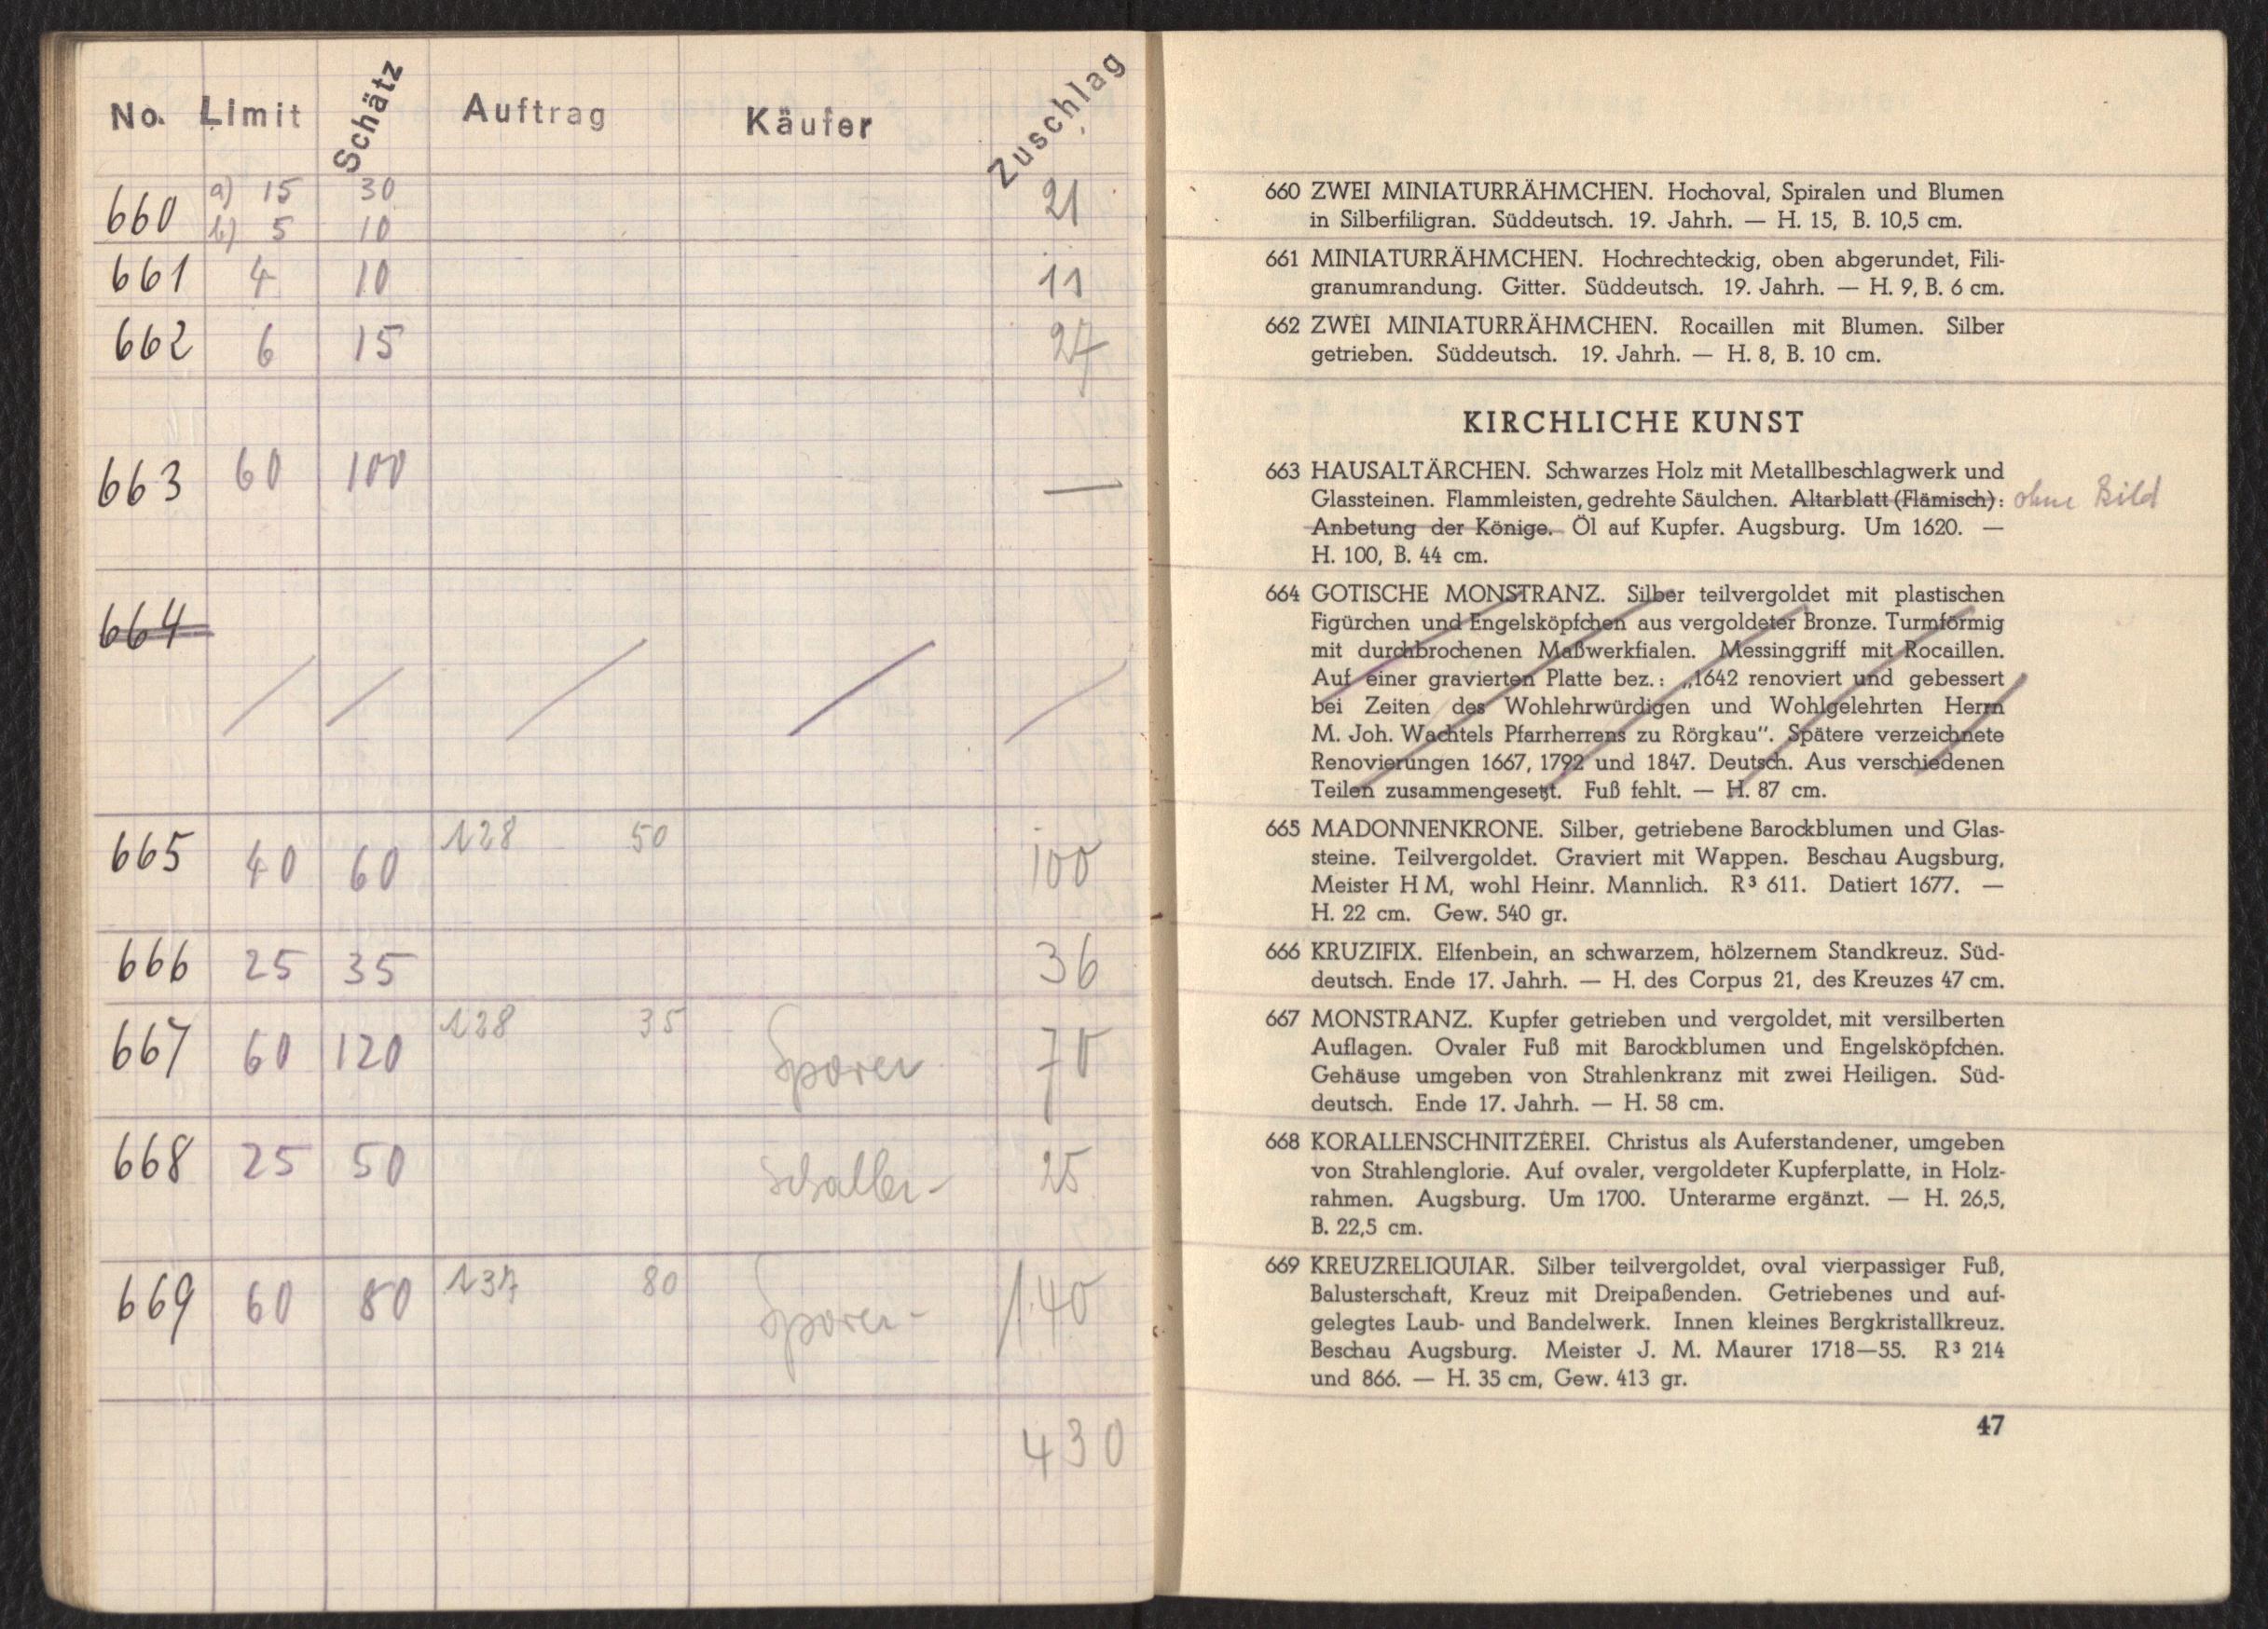 No. Limit Schätz Auftrag Käufer Zuschlag
660 a) 15 30 21
b) 5 10
661 4 10 11
662 6 15 27
663 60 100 —
664
665 40 60 128 50 100
666 25 35 36
667 60 120 128 35 Sporer 70
668 25 50 Schaller - 25
669 60 80 137 80 Sporer - 140
430
660 ZWEI MINIATURRÄHMCHEN. Hochoval, Spiralen und Blumen
in Silberfiligran. Süddeutsch. 19. Jahrh. — H. 15, B. 10,5 cm.
661 MINIATURRÄHMCHEN. Hochrechteckig, oben abgerundet, Fili-
granumrandung. Gitter. Süddeutsch. 19. Jahrh. — H. 9, B. 6 cm.
662 ZWEI MINIATURRÄHMCHEN. Rocaillen mit Blumen. Silber
getrieben. Süddeutsch. 19. Jahrh. — H. 8, B. 10 cm.
KIRCHLICHE KUNST
663 HAUSALTÄRCHEN. Schwarzes Holz mit Metallbeschlagwerk und
Glassteinen. Flammleisten, gedrehte Säulchen. Altarblatt (Flämisch): ohne Bild
Anbetung der Könige. Öl auf Kupfer. Augsburg. Um 1620. —
H. 100, B. 44 cm.
664 GOTISCHE MONSTRANZ. Silber teilvergoldet mit plastischen
Figürchen und Engelsköpfchen aus vergoldeter Bronze. Turmförmig
mit durchbrochenen Maßwerkfialen. Messinggriff mit Rocaillen.
Auf einer gravierten Platte bez.: „1642 renoviert und gebessert
bei Zeiten des Wohlehrwürdigen und Wohlgelehrten Herrn
M. Joh. Wachtels Pfarrherrens zu Rörgkau". Spätere verzeichnete
Renovierungen 1667, 1792 und 1847. Deutsch. Aus verschiedenen
Teilen zusammengesetzt. Fuß fehlt. — H. 87 cm.
665 MADONNENKRONE. Silber, getriebene Barockblumen und Glas-
steine. Teilvergoldet. Graviert mit Wappen. Beschau Augsburg,
Meister H M, wohl Heinr. Mannlich. R³ 611. Datiert 1677. —
H. 22 cm. Gew. 540 gr.
666 KRUZIFIX. Elfenbein, an schwarzem, hölzernem Standkreuz. Süd-
deutsch. Ende 17. Jahrh. — H. des Corpus 21, des Kreuzes 47 cm.
667 MONSTRANZ. Kupfer getrieben und vergoldet, mit versilberten
Auflagen. Ovaler Fuß mit Barockblumen und Engelsköpfchen.
Gehäuse umgeben von Strahlenkranz mit zwei Heiligen. Süd-
deutsch. Ende 17. Jahrh. — H. 58 cm.
668 KORALLENSCHNITZEREI. Christus als Auferstandener, umgeben
von Strahlenglorie. Auf ovaler, vergoldeter Kupferplatte, in Holz-
rahmen. Augsburg. Um 1700. Unterarme ergänzt. — H. 26,5,
B. 22,5 cm.
669 KREUZRELIQUIAR. Silber teilvergoldet, oval vierpassiger Fuß,
Balusterschaft, Kreuz mit Dreipaßenden. Getriebenes und auf-
gelegtes Laub- und Bandelwerk. Innen kleines Bergkristallkreuz.
Beschau Augsburg. Meister J. M. Maurer 1718—55. R³ 214
und 866. — H. 35 cm, Gew. 413 gr.
47